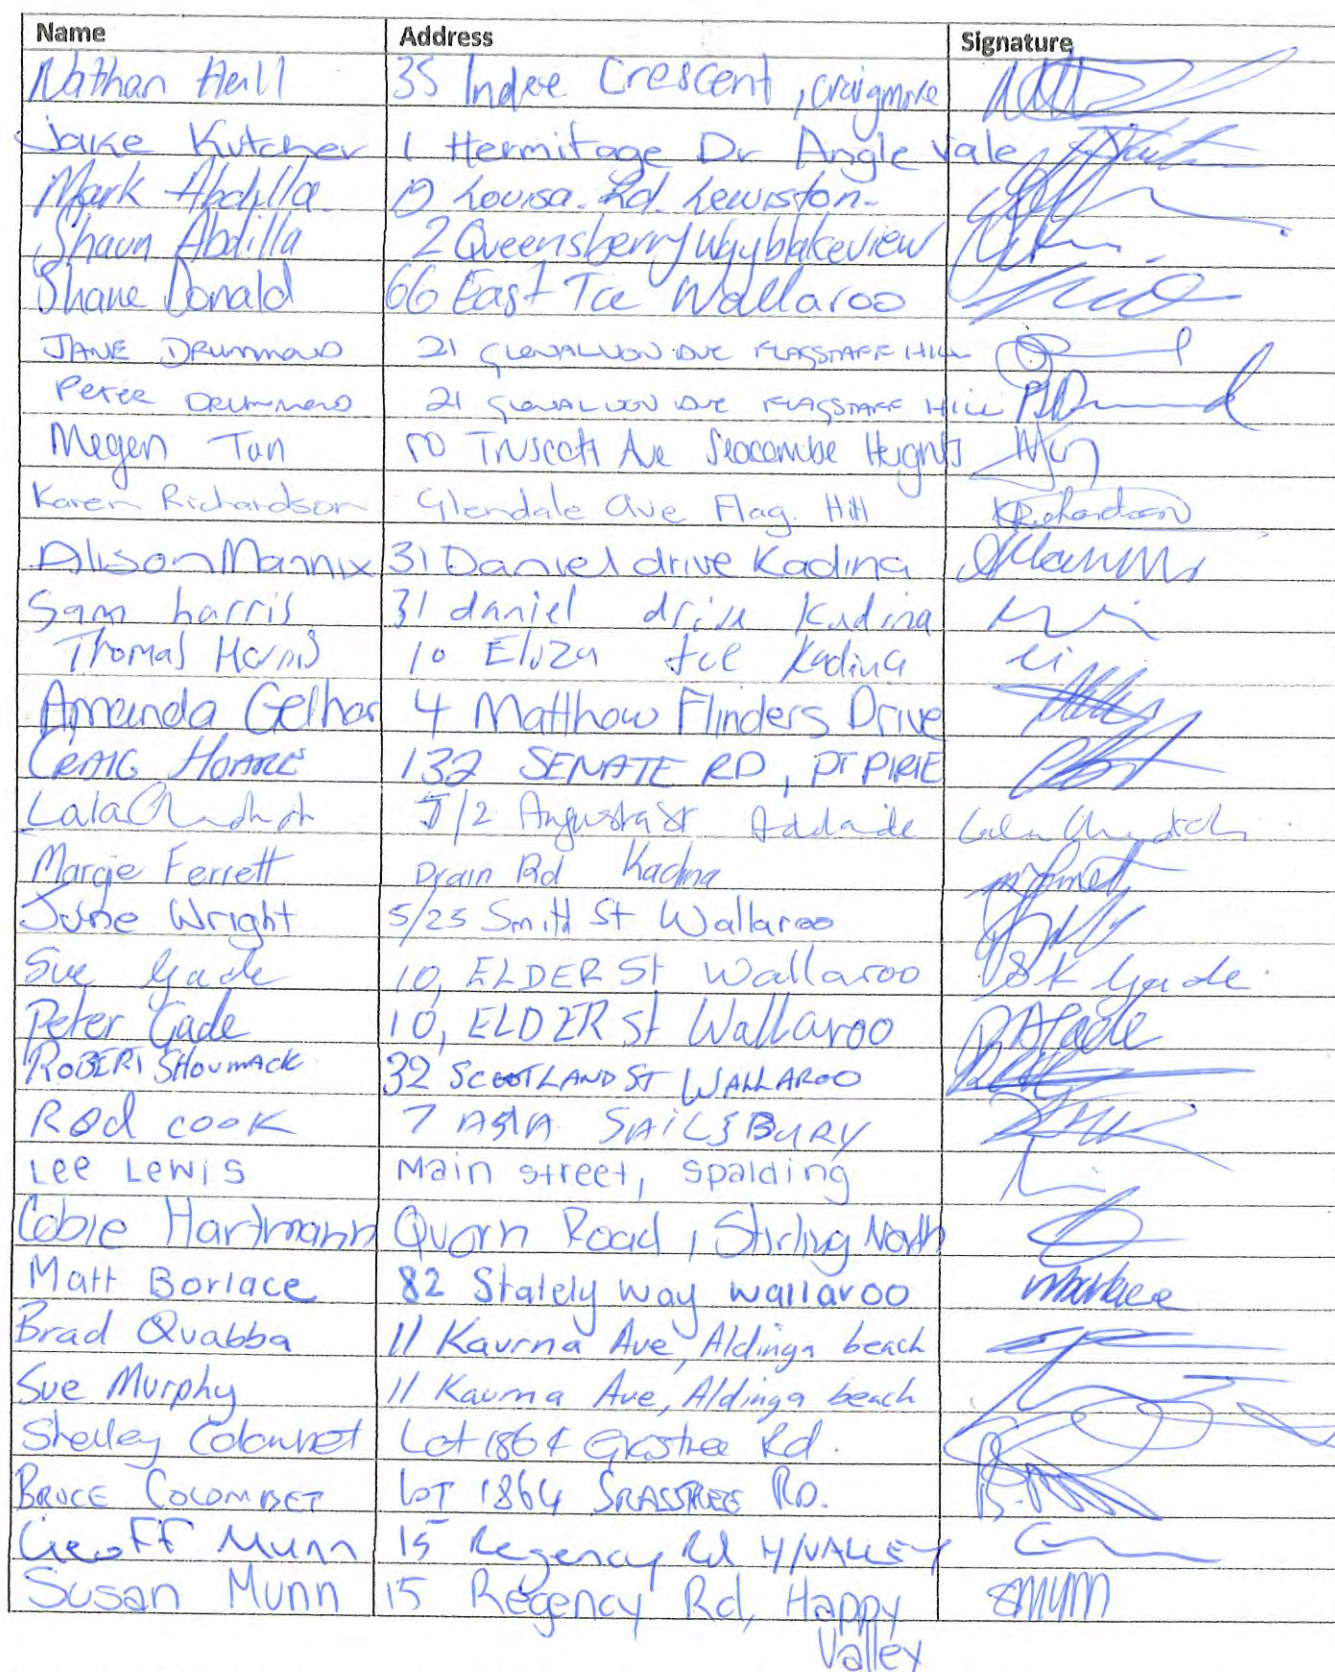 Name Address Signature
Nathan Hall 35 Indee Crescent, Craigmore
Jake Kutcher 1 Hermitage Dr Angle Vale
Mark Abdilla 19 Louisa Rd. Lewiston-
Shaun Abdilla 2 Queensberry Way blakeview
Shane Donald 66 East Tce Wallaroo
JANE DRUMMOND 21 GLENALVON DVE FLAGSTAFF HILL
PETER DRUMMOND 21 GLENALVON DVE FLAGSTAFF HILL
Megen Tan 10 Truscott Ave Seacombe Heights
Karen Richardson Glendale Ave Flag. Hill KRichardson
Alison Mannix 31 Daniel drive Kadina
Sam harris 31 daniel drive Kadina
Thomas Harris 10 Eliza tce Kadina
Amanda Gelhar 4 Matthow Flinders Drive
CRAIG HOARE 132 SENATE RD, PT PIRIE
Lala /2 Augusta St Addelaide Lala
Margie Ferrett Drain Rd Kadina
June Wright 5/25 Smith St Wallaroo
Sue Gade 10, ELDER St Wallaroo SK Gade
Peter Gade 10, ELDER St Wallaroo Gade
ROBERT SHOUMACK 32 SCOTLAND ST WALLAROO
Rod COOK 7 ASIA SAILSBURY
Lee Lewis Main street, Spalding
Cobie Hartmann Quorn Road, Stirling North
Matt Borlace 82 Stately Way Wallaroo mborlace
Brad Quabba 11 Kaurna Ave, Aldinga beach
Sue Murphy 11 Kaurna Ave, Aldinga beach
Colombet Lot 1864 Rd.
BRUCE COLOMBET LOT 1864 GRASSTREE RD.
Geoff Munn 15 Regency Rd H/VALLEY
Susan Munn 15 Regency Rd, Happy SMunn
Valley